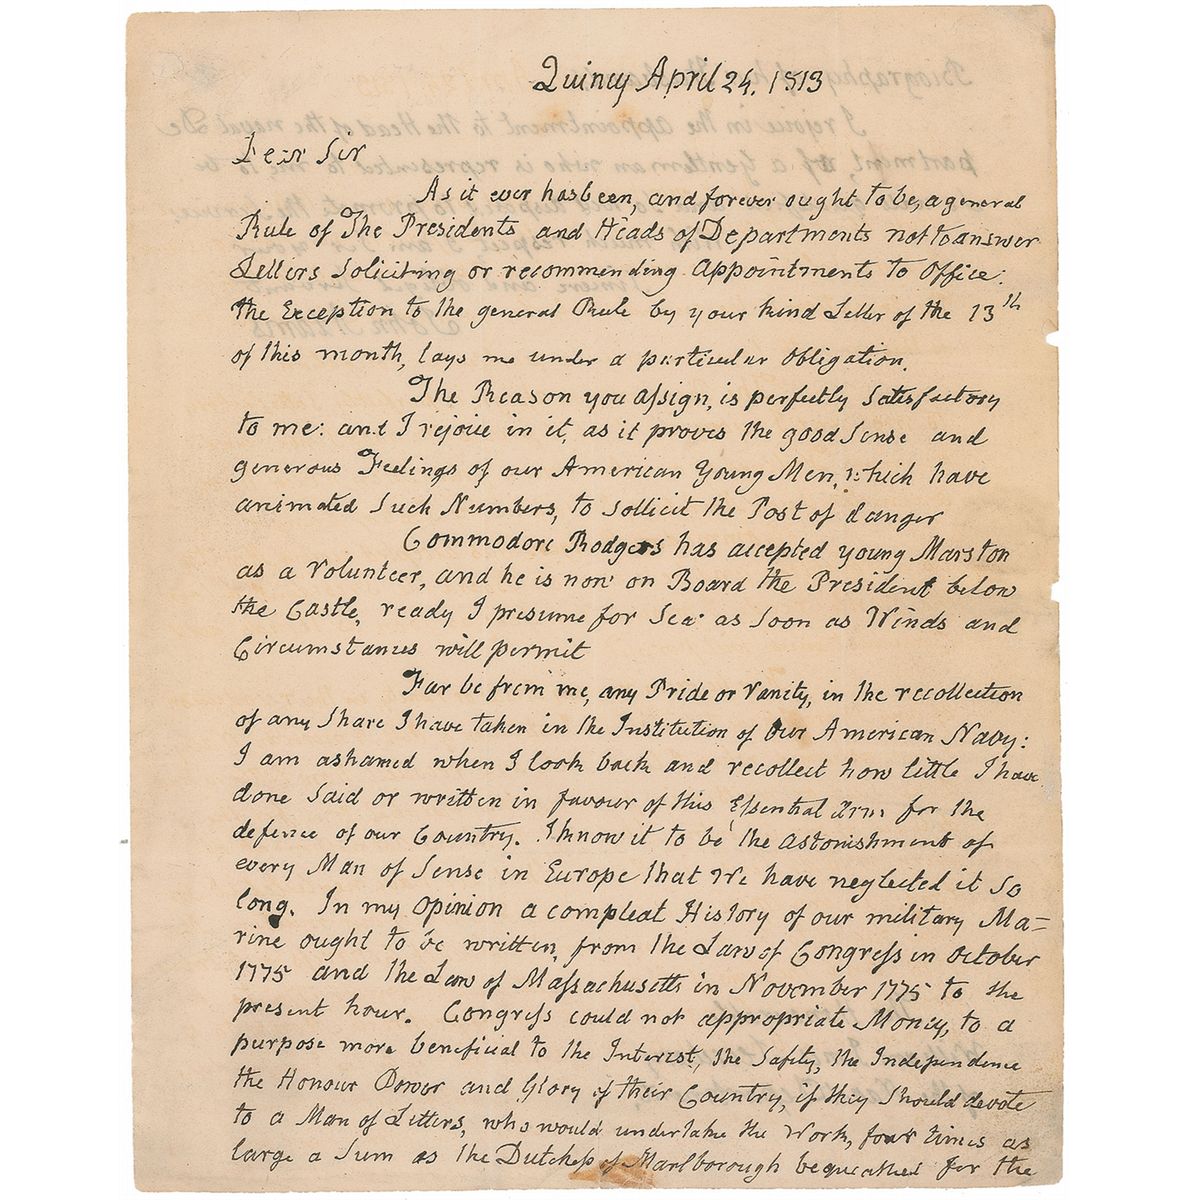 Quincy April 24. 1813
Dear Sir
As it ever has been, and forever ought to be, a general
Rule of The Presidents and Heads of Departments not to answer
Letters Soliciting or recommending appointments to Office:
the Exception to the general Rule by your kind Letter of the 13th
of this month, lays me under a particular Obligation.
The Reason you assign, is perfectly Satisfactory
to me: and I rejoice in it, as it proves the good Sense and
generous Feelings of our American Young Men, which have
animated Such Numbers, to Sollicit the Post of danger
Commodore Rodgers has accepted young Marston
as a Volunteer, and he is now on Board the President below
the Castle, ready I presume for Sea as Soon as Winds and
Circumstances will permit
Far be from me, any Pride or Vanity, in the recollection
of any Share I have taken in the Institution of Our American Navy:
I am ashamed when I look back and recollect how little I have
done Said or written in favour of this Essential Arm for the
defence of our Country. I know it to be the astonishment of
every Man of Sense in Europe that We have neglected it So
long. In my opinion a compleat History of our military Ma-
rine ought to be written, from the Law of Congress in October
1775 and the Law of Massachusetts in November 1775 to the
present hour. Congress could not appropriate Money, to a
purpose more beneficial to the Interest, the Safety, the Independence
the Honour Power and Glory of their Country, if they Should devote
to a Man of Letters, who would undertake the Work, four times as
large a Sum as the Dutchess of Marlborough bequeathed for the